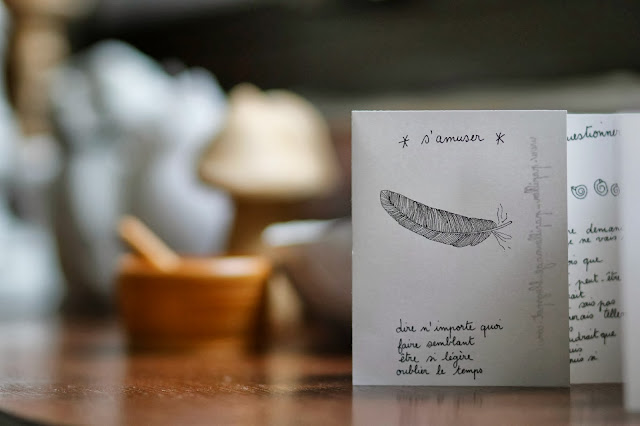 * s'amuser *
dire n'importe quoi
faire semblant
être si légère
oublier le temps
uestionner
deman
ne vais
que
peut-être
sais pas
oudrait que
si